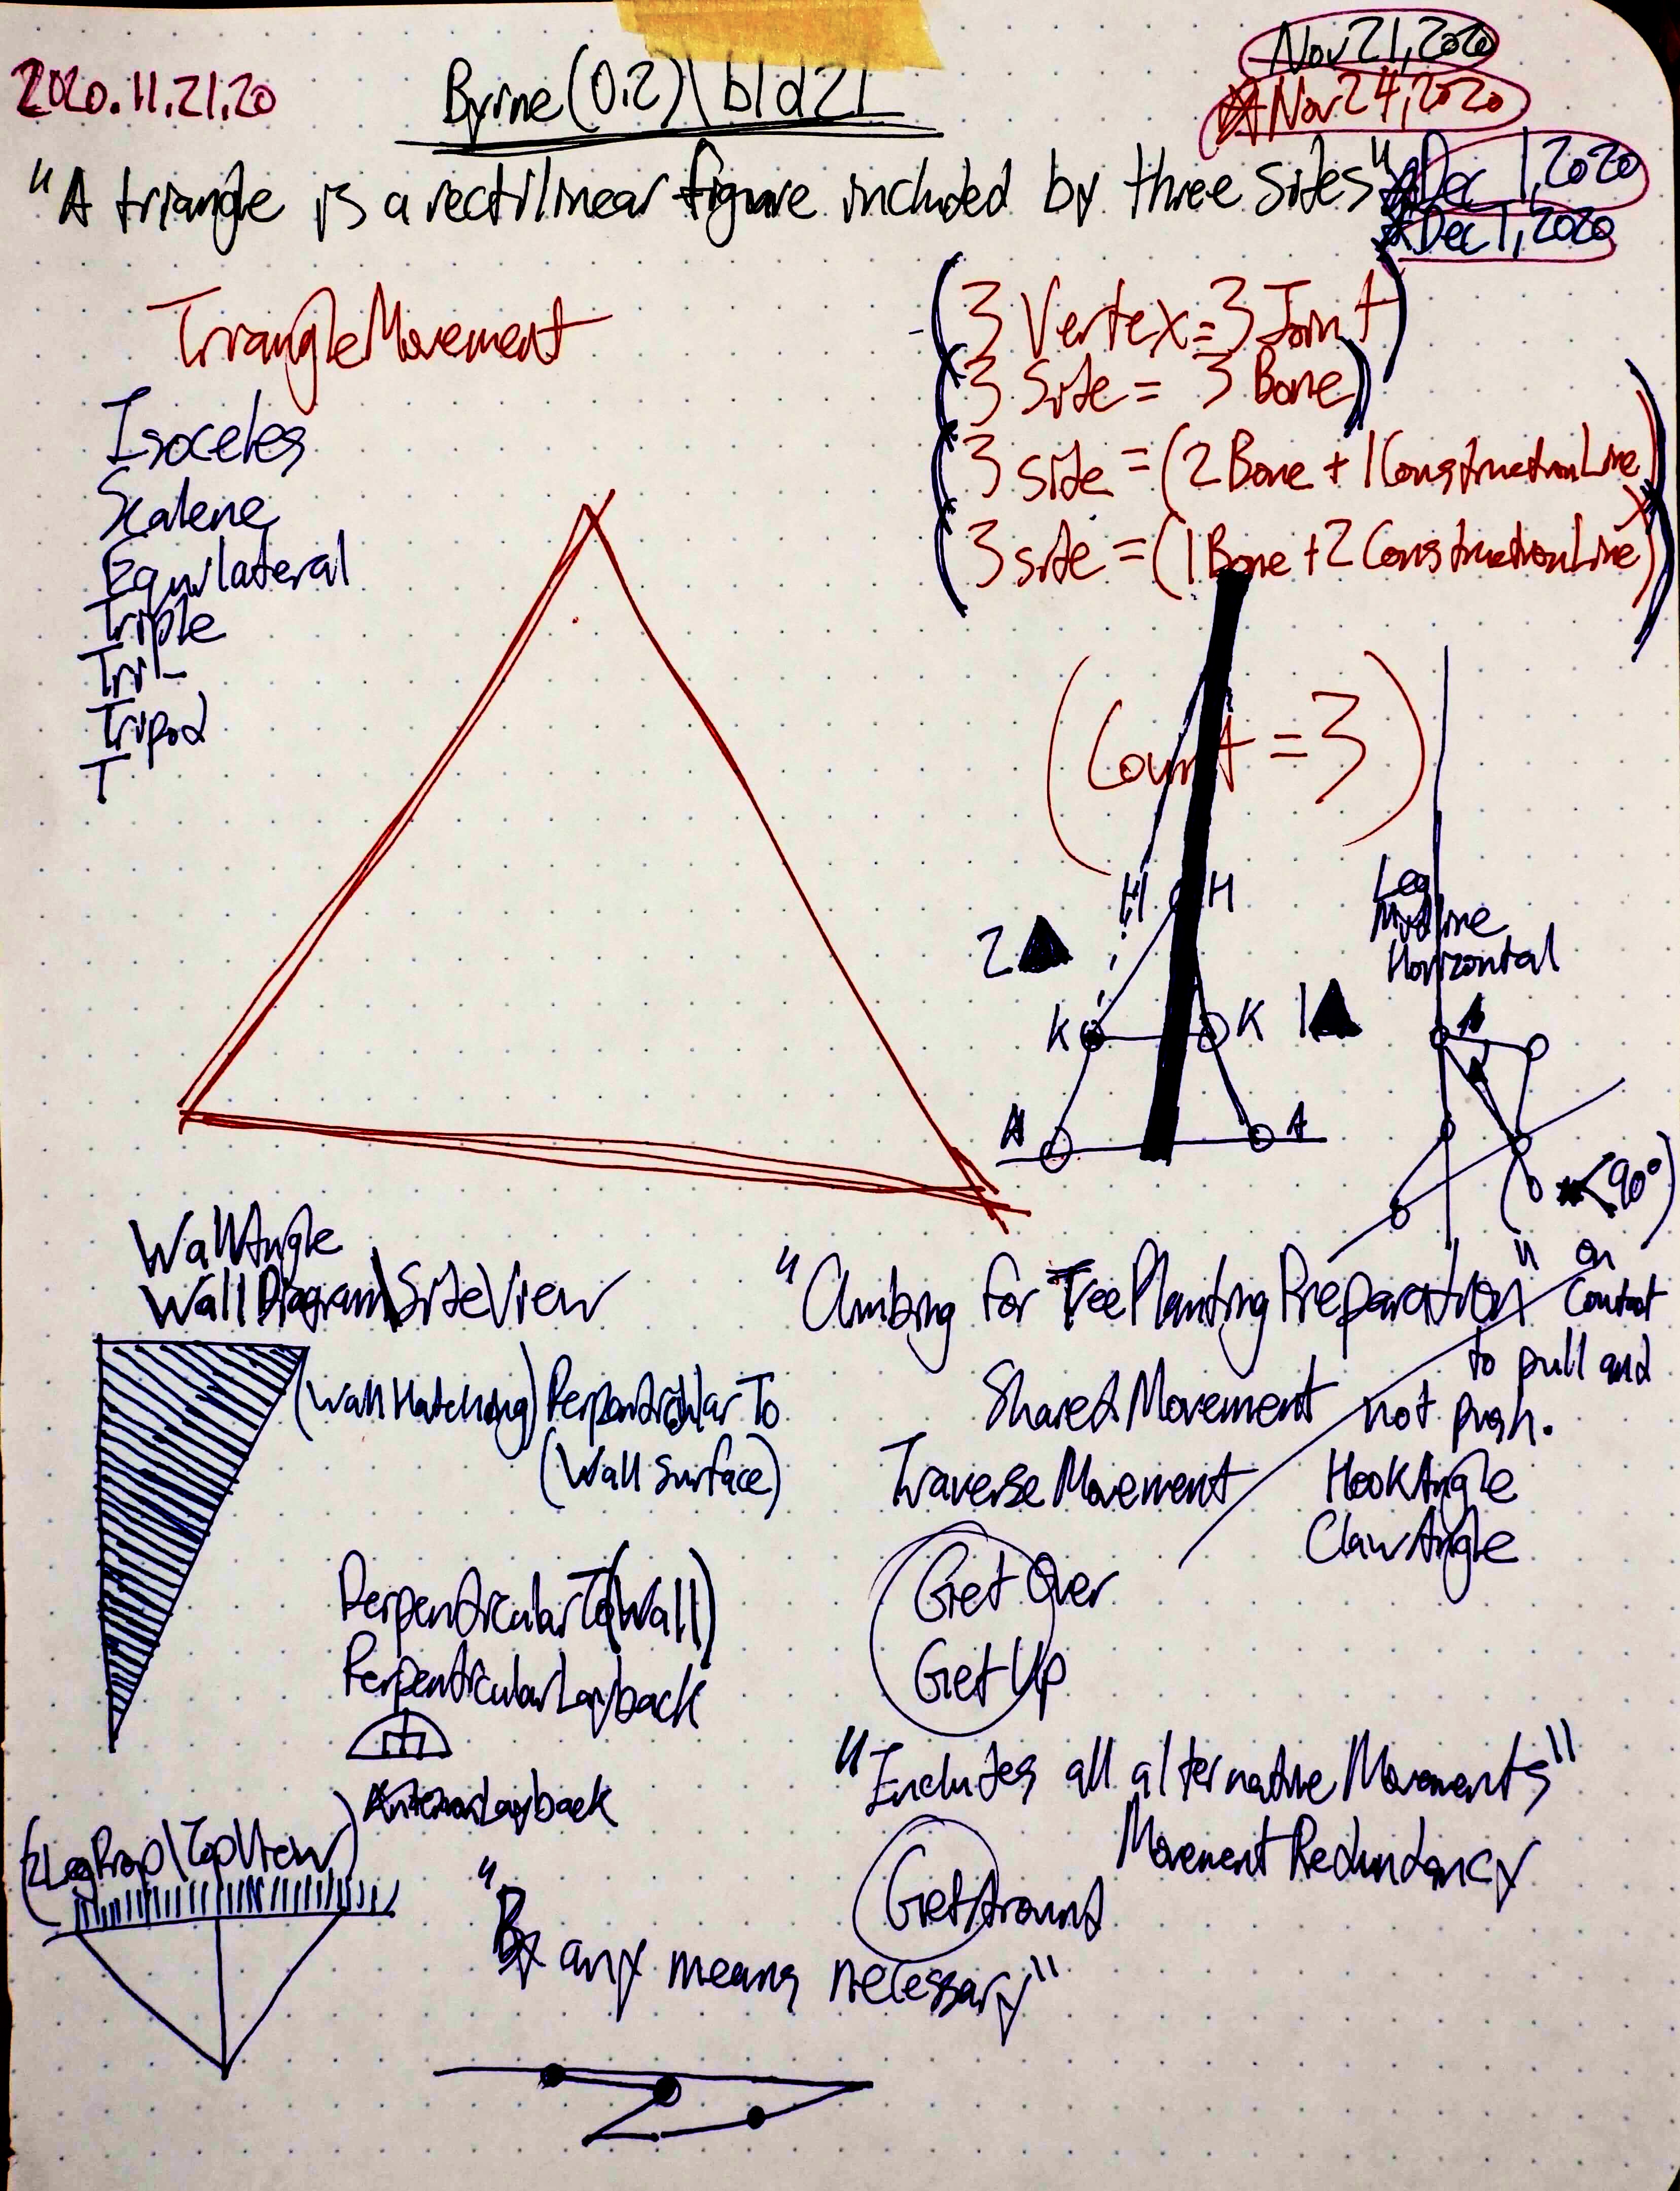 2020.11.21.20
Byrne(0,2)\bld21
Nov 21, 2020
Nov 24, 2020
"A triangle is a rectilinear figure included by three sides"
Dec 1, 2020
Dec 1, 2020
TriangleMovement
(3 Vertex = 3 Joint)
(3 Side = 3 Bone)
(3 side = (2 Bone + 1 ConstructionLine))
(3 side = (1 Bone + 2 ConstructionLine))
Isoceles
Scalene
Equilateral
Triple
Tri-
Tripod
T
(Count = 3)
H H
Leg
Midline
Horizontal
2
K K 1
A A
(<90°)
WallAngle
WallDiagram\SideView
"Climbing for TreePlantingPreparation"
on
Contact
to pull and
not push.
(WallHatching) PerpendicularTo
(Wall Surface)
SharedMovement
TraverseMovement
HookAngle
ClawAngle
GetOver
GetUp
PerpendicularTo(Wall)
PerpendicularLayback
AnteriorLayback
"Includes all alternative Movements"
MovementRedundancy
(2LegProp\TopView)
GetAround
"By any means necessary"